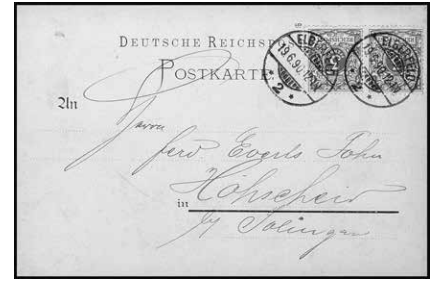 DEUTSCHE REICHSP
POSTKARTE
ELBERFELD
19.6.90
* 2 *
ELBERFELD
An
Herrn
Ferd Everts Sohn
in Höhscheid
by Solingen